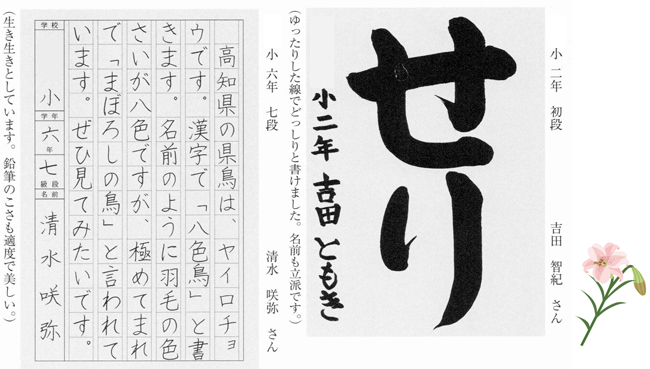 小二年 初段 吉田 智紀 さん
せり
小二年 吉田ともき
(ゆったりした線でどっしりと書けました。名前も立派です。)
小六年 七段 清水 咲弥 さん
高知県の県鳥は、ヤイロチョ
ウです。漢字で「八色鳥」と書
きます。名前のように羽毛の色
さいが八色ですが、極めてまれ
で「まぼろしの鳥」と言われて
います。ぜひ見てみたいです。
学校 小 学年 六年 七 級段 名前 清水咲弥
(生き生きとしています。鉛筆のこさも適度で美しい。)